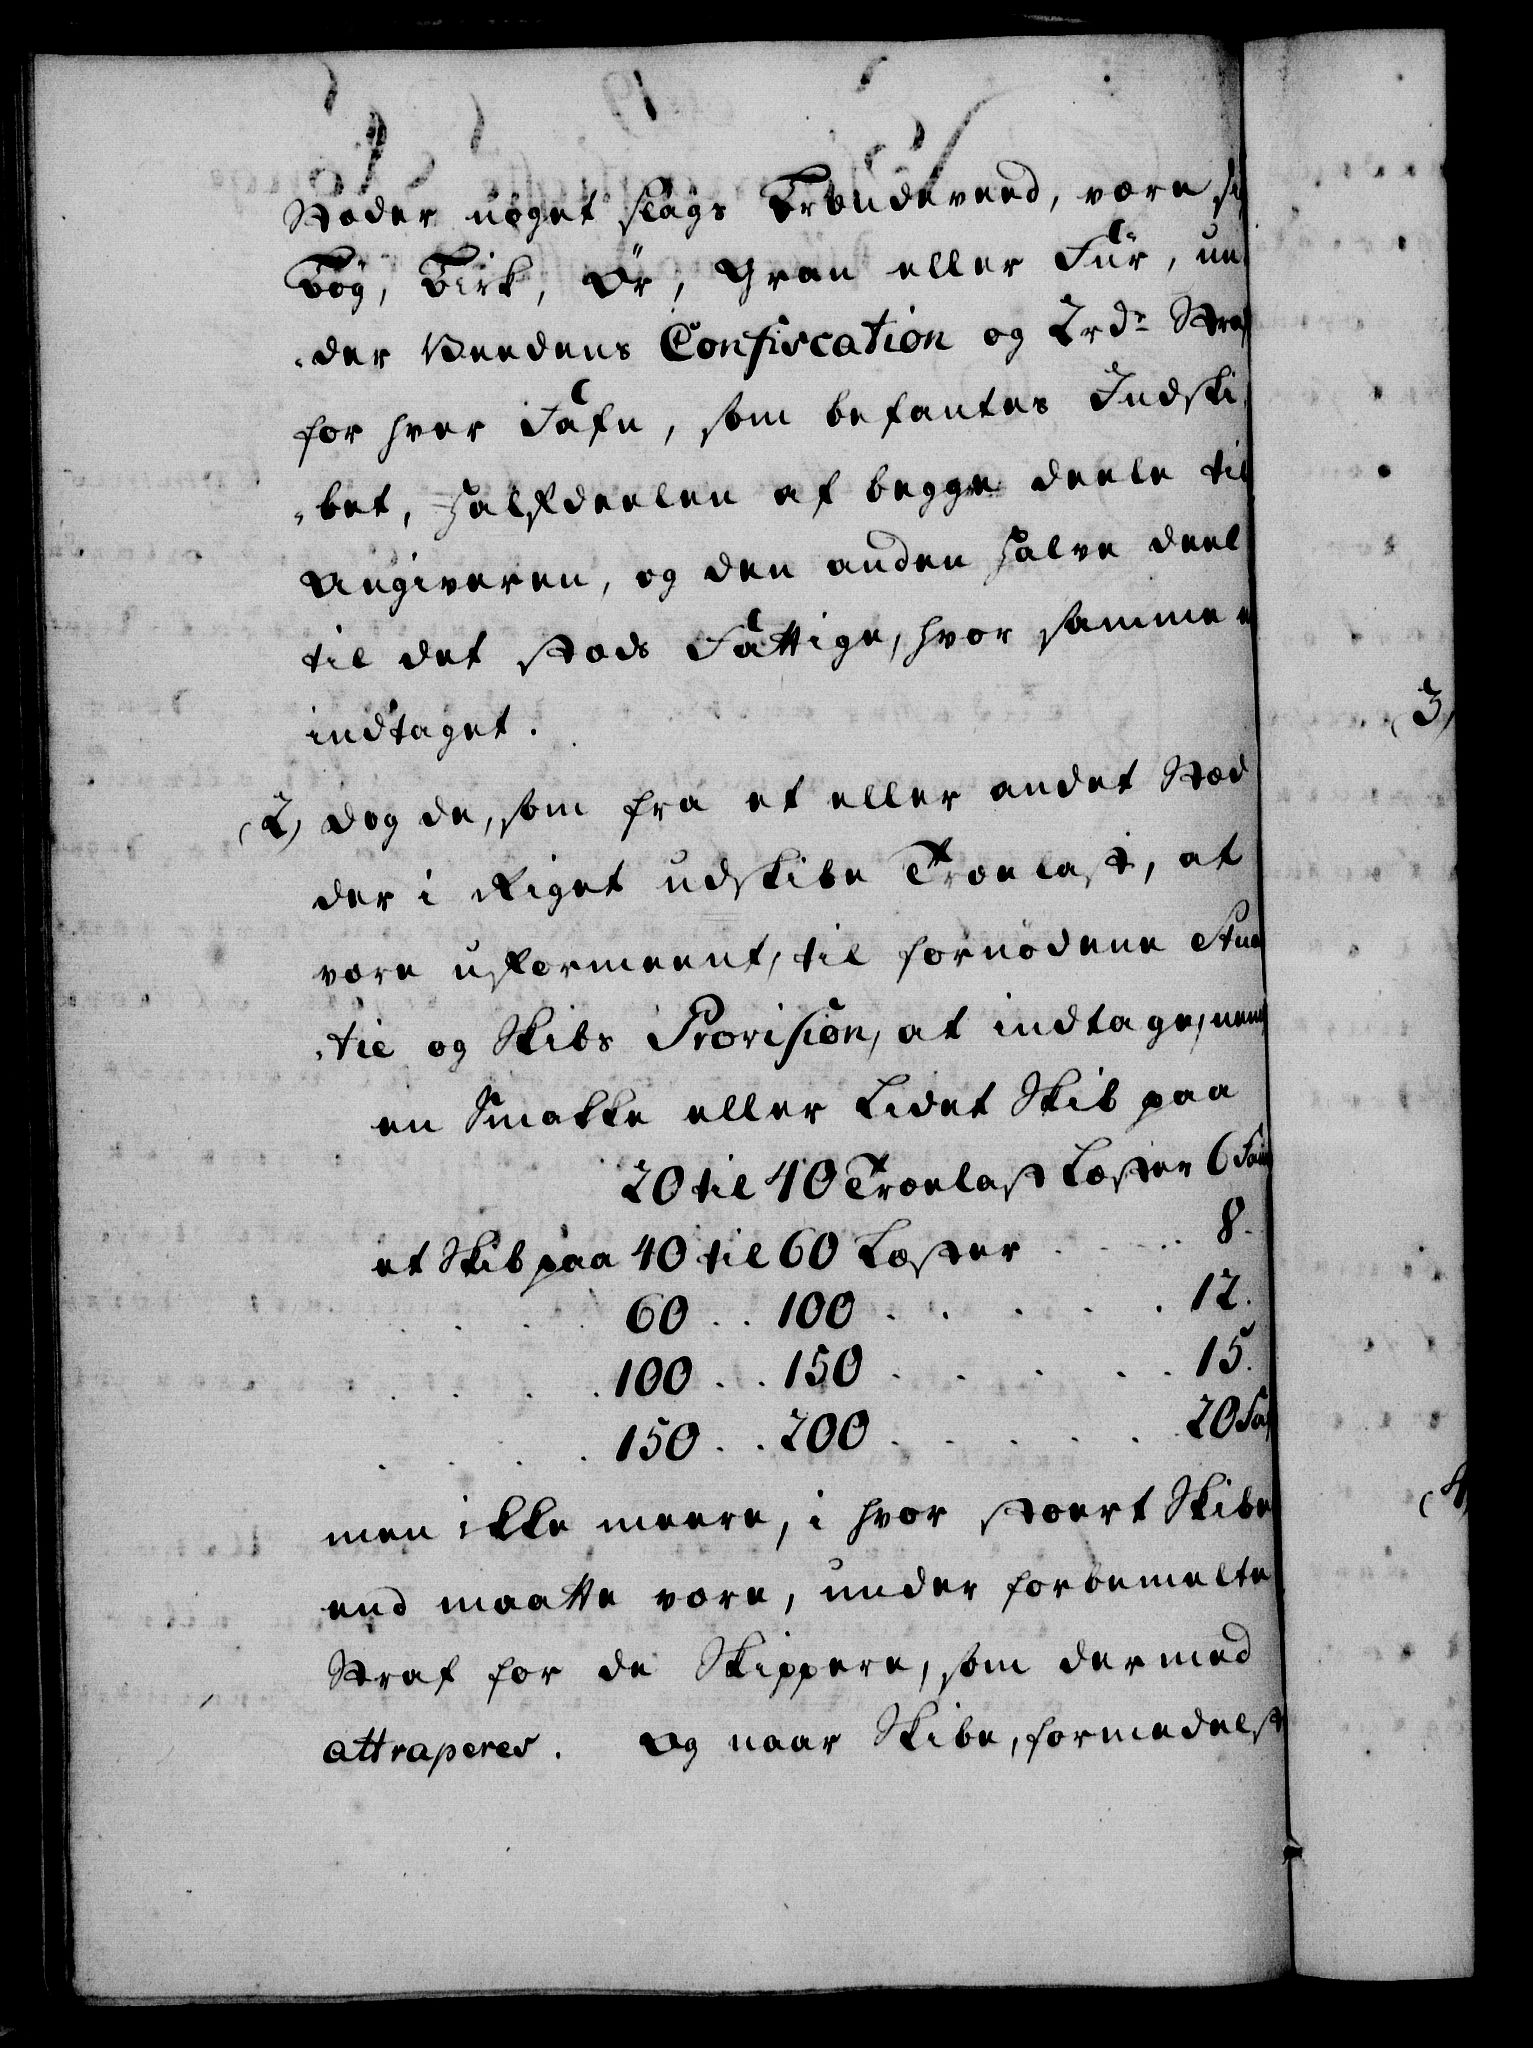 Stæder noget slags Brændeveed, være sig
Bøg, Birk, Ør, Gran eller Fűr, un¬
„der Veedens Confiscation og 2rdr Straf
for hver Fafn, som befantes Indski¬
„bet, Halfdeelen af begge deele til
Angiveren, og den anden halve deel
til det Stæds Fattige, hvor samme er
indtaget.
(2) Dog de, som fra et eller andet Stæd
der i Riget udskibe Trælast, at
være uformeent, til fornødene Stua¬
„tie og Skibs Provision, at indtage,
en Smakke eller Lidet Skib paa
20 til 40 Trælast Læster 6 Fafn
et Skib paa 40 til 60 Læster . . . . 8.
. . . . 60 . . 100 . . . . . 12.
. . . . 100 . . 150 . . . . . 15.
. . . . 150 . . 200 . . . . . 20 Faf
men ikke meere, i hvor stoert Skibe
end maatte være, under forbemelte
Straf for de Skippere, som dermed
attraperes. Og naar Skibe, formedelst
3)
(4